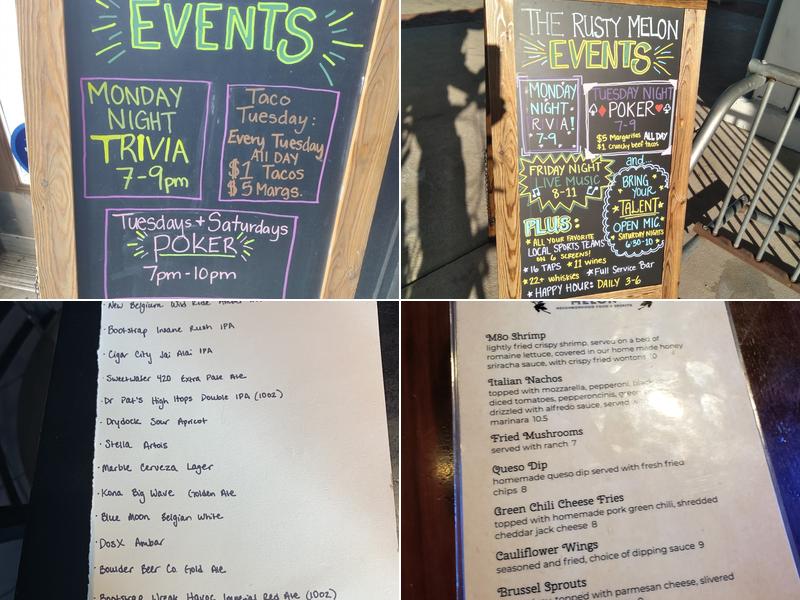 EVENTS
MONDAY
NIGHT
TRIVIA
7-9pm
Taco
Tuesday:
Every Tuesday
All DAY
$1 Tacos
$5 Margs.
Tuesdays + Saturdays
POKER
7pm-10pm
THE RUSTY MELON
EVENTS
MONDAY
NIGHT
RVA!
7-9
TUESDAY NIGHT
POKER
7-9
$5 Margaritas ALL DAY
$1 Crunchy beef tacos
and...
FRIDAY NIGHT
LIVE MUSIC
8-11
BRING
YOUR
TALENT
OPEN MIC
SATURDAY NIGHTS
6:30-10
PLUS:
ALL YOUR FAVORITE
LOCAL SPORTS TEAMS
ON 6 SCREENS!
16 TAPS 11 wines
22+ whiskies Full Service Bar
HAPPY HOUR: DAILY 3-6
New Belgium Wild Ride
· Bootstrap Insane Rush IPA
· Cigar City Jai Alai IPA
Sweetwater 420 Extra Pale Ale
· Dr Pat's High Hops Double IPA (10oz)
· Drydock Sour Apricot
· Stella Artois
· Marble Cerveza Lager
· Kona Big Wave Golden Ale
· Blue Moon Belgian White
· DosX Ambar
· Boulder Beer Co. Gold Ale
· Bootstrap Wreak Havoc Imperial Red Ale (10oz)
MELON
NEIGHBORHOOD FOOD & SPIRITS
M80 Shrimp
lightly fried crispy shrimp, served on a bed of
romaine lettuce, covered in our home made honey
sriracha sauce, with crispy fried wontons
Italian Nachos
topped with mozzarella, pepperoni, black
diced tomatoes, pepperoncinis, green
drizzled with alfredo sauce, served
marinara 10.5
Fried Mushrooms
served with ranch 7
Queso Dip
homemade queso dip served with fresh fried
chips 8
Green Chili Cheese Fries
topped with homemade pork green chili, shredded
cheddar jack cheese 8
Cauliflower Wings
seasoned and fried, choice of dipping sauce 9
Brussel Sprouts
topped with parmesan cheese, slivered